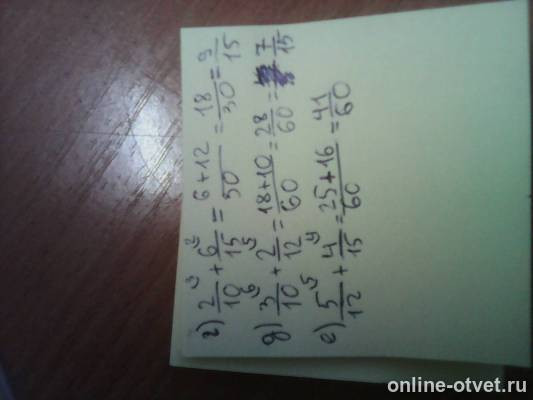 г) 2/10 ³ + 6/15 ² = 6+12/30 = 18/30 = 9/15
д) 3/10 ⁶ + 2/12 ⁵ = 18+10/60 = 28/60 = 7/15
е) 5/12 ⁵ + 4/15 ⁴ = 25+16/60 = 41/60
online-otvet.ru